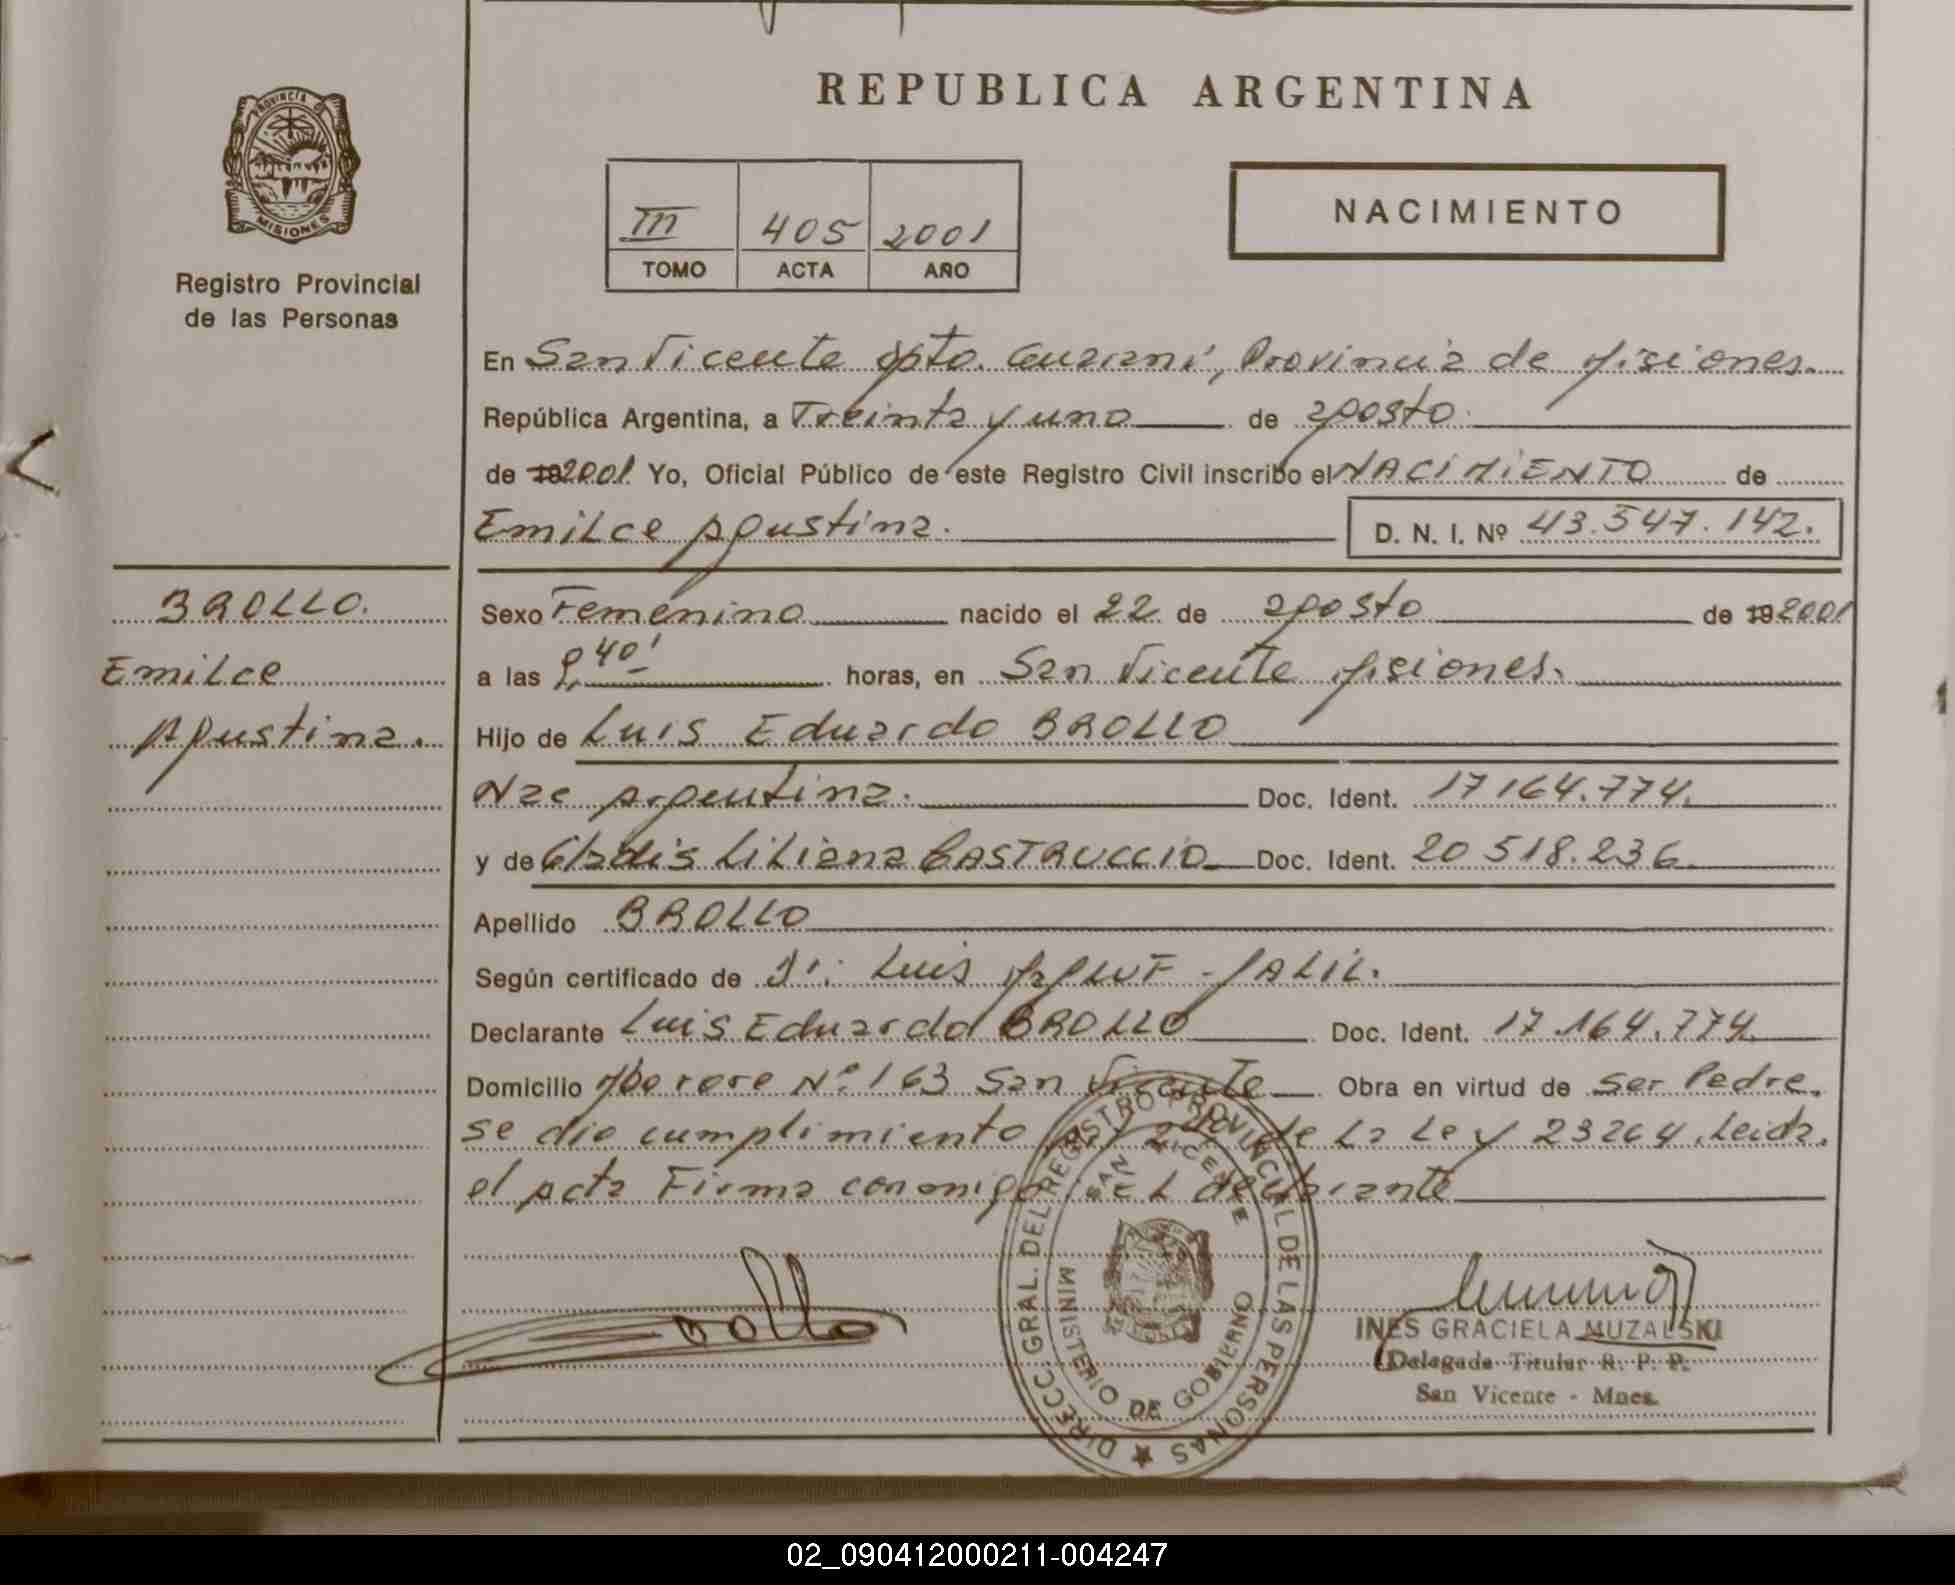 REPUBLICA ARGENTINA
PROVINCIA DE
MISIONES
Registro Provincial
de las Personas
III 405 2001
TOMO ACTA AÑO
NACIMIENTO
En San Vicente Dpto. Guaraní, Provincia de Misiones.
República Argentina, a Treinta y uno de agosto.
de 19 2001. Yo, Oficial Público de este Registro Civil inscribo el NACIMIENTO de
Emilce Agustina.
D. N. I. Nº 43.547.142.
BROLLO.
Emilce
Agustina.
Sexo Femenino nacido el 22 de agosto de 19 2001
a las 40' horas, en San Vicente Misiones.
Hijo de Luis Eduardo BROLLO
Nac Argentina. Doc. Ident. 17 164.774.
y de Gladis Liliana CASTRUCCIO Doc. Ident. 20 518.236.
Apellido BROLLO
Según certificado de Dr: Luis JALIL.
Declarante Luis Eduardo BROLLO Doc. Ident. 17.164.774.
Domicilio Nº 163 San Vicente Obra en virtud de ser Padre.
se dio cumplimiento de La Ley 23264. Leida.
el acta Firma conmigo EL declarante
DIRECC. GRAL. DEL REGISTRO PROVINCIAL DE LAS PERSONAS
SAN VICENTE
MINISTERIO DE GOBIERNO
INES GRACIELA MUZALSKI
Delegada Titular R. P. P.
San Vicente - Mnes.
02_090412000211-004247